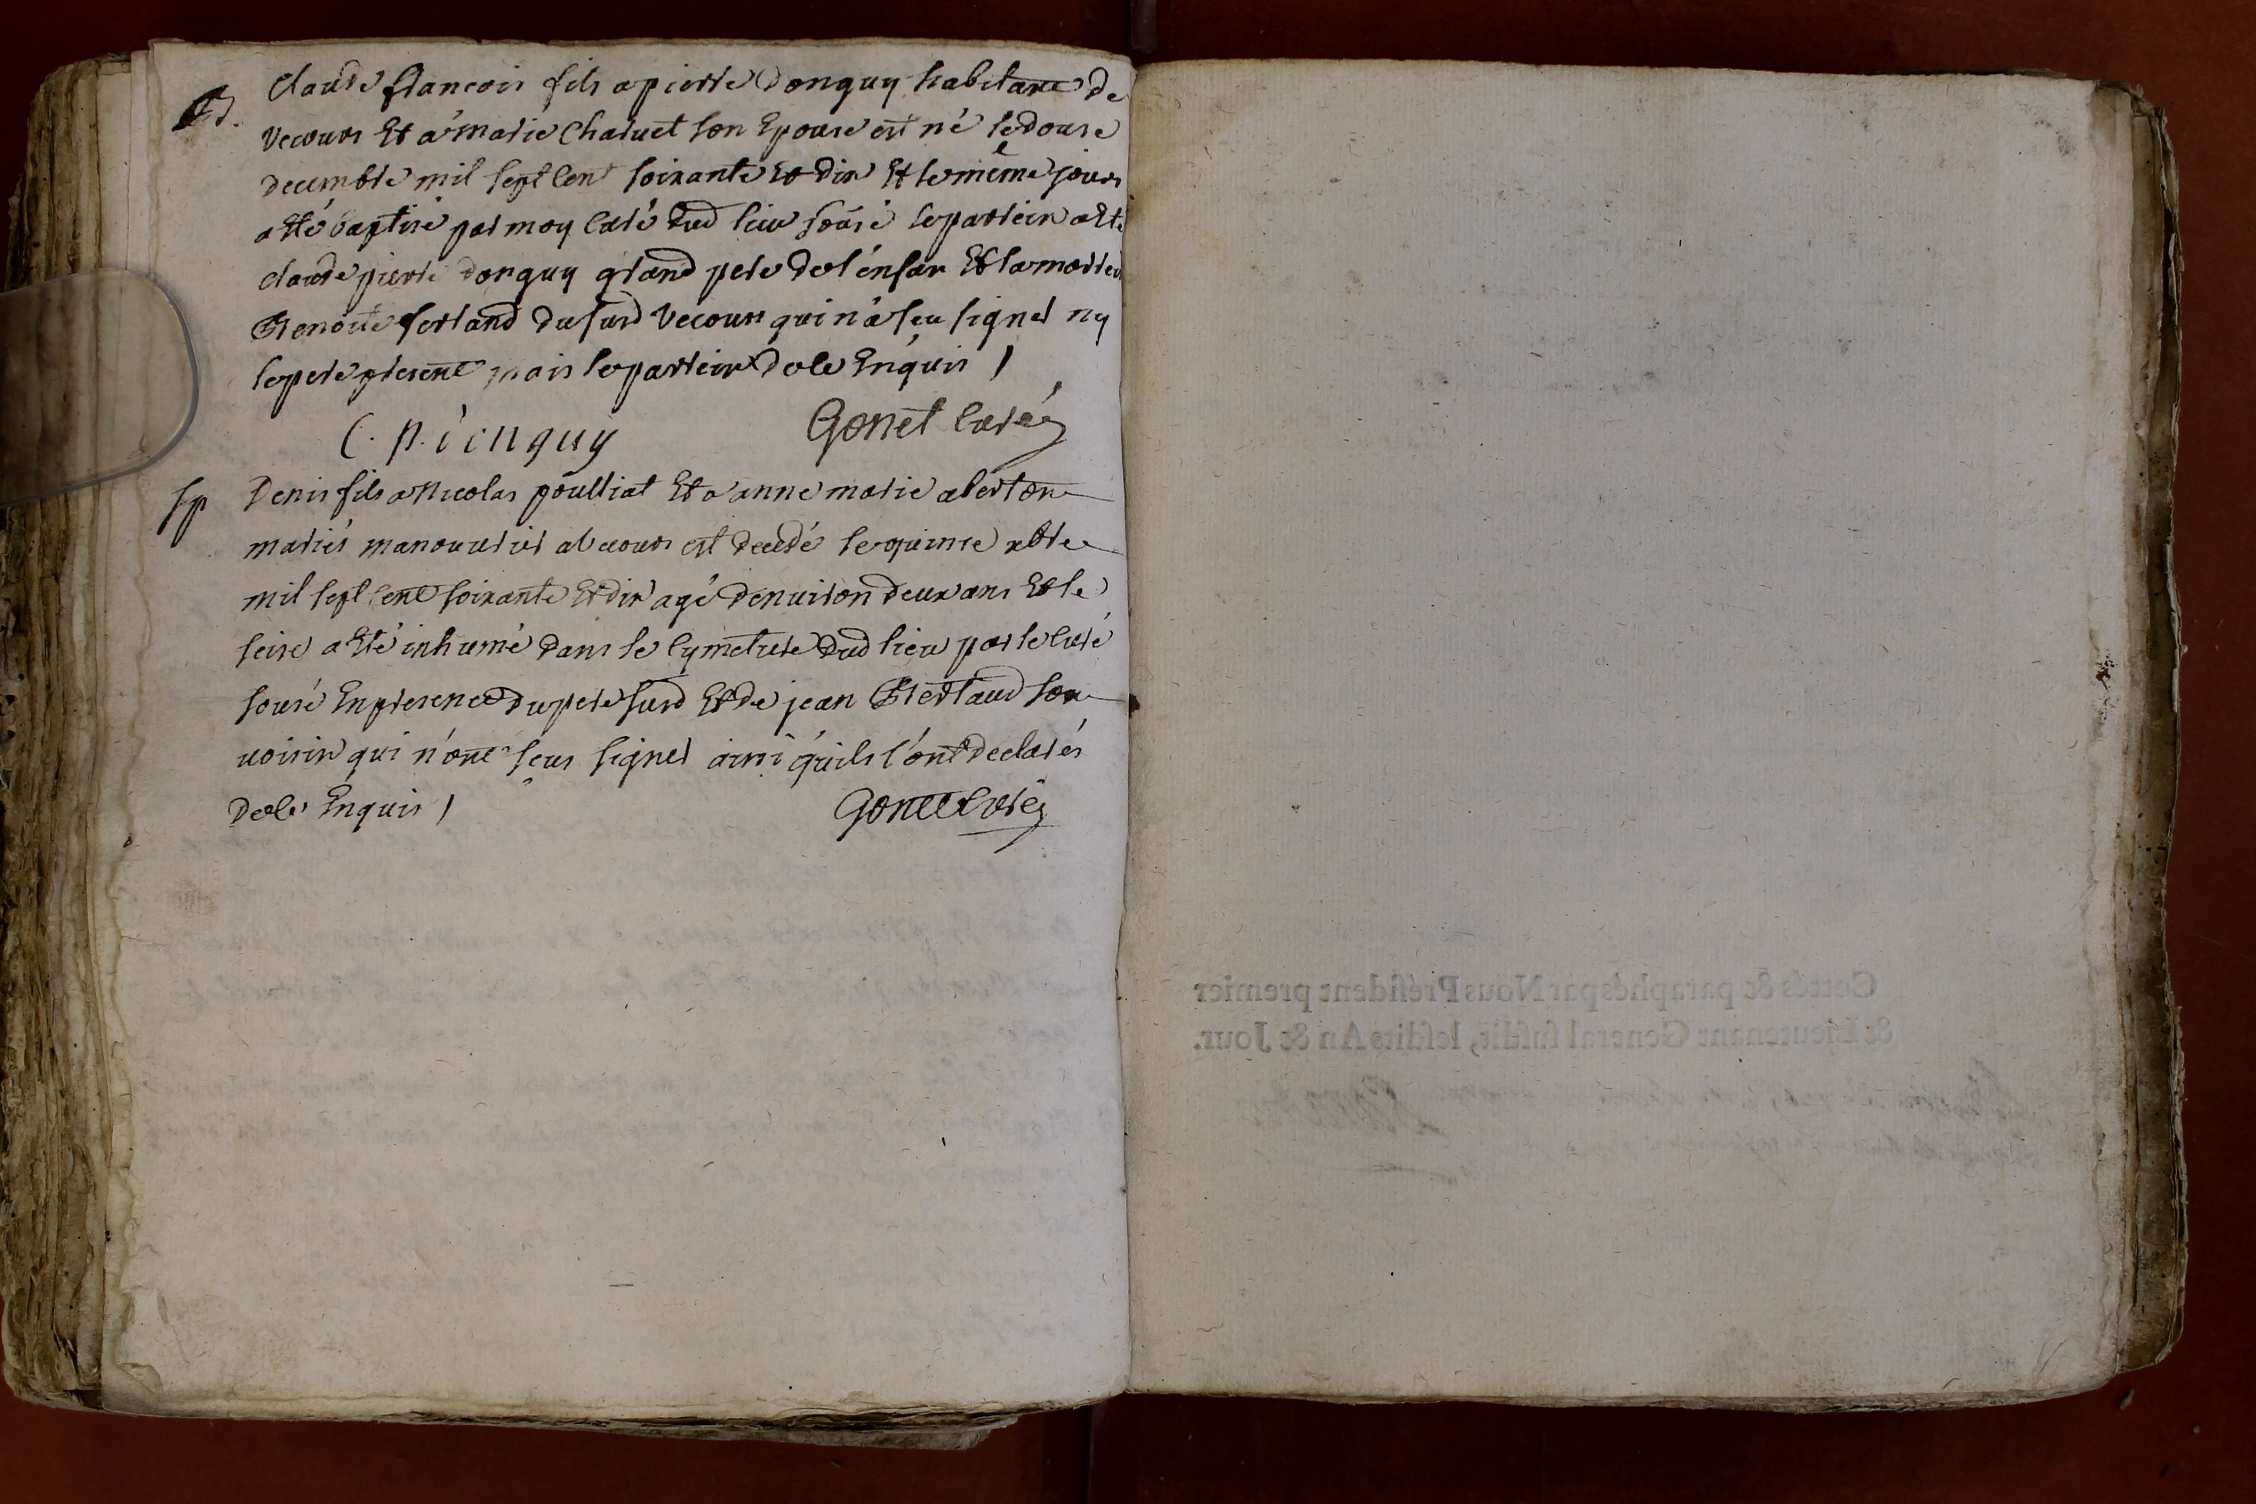 B.
Claude francois fils a pierre Donguy habitant de
Vecours Et a marie Charvet son Epouse est né le douse
decembre mil sept cent soixante et dix Et le même jour
a été baptisé par moy curé dud lieu sousé le parrein a Eté
claude pierre donguy grand pere de l'enfan Et la marrei
ferland du susd Vecour qui n'a seu signer ny
le pere present mais le parrein de ce Enquis /
C. p. donguy Gonet curé
Sp
Denis fils a Nicolas poulliat Et a anne marie
mariés manouvrier a Vecours est decedé le quinse xbre
mil sept cent soixante Et dix agé d'environ deux ans Et le
seise a Eté inhumé dans le cymetiere dud lieu par le curé
sousé En presence du pere susd Et de jean son
voisin qui n'ont seus signer ainsi qu'ils l'ont declarés
de ce Enquis / Gonet curé
Cottés & paraphés par Nous Président premier
& Lieutenant General susdit, lesdits An & Jour.